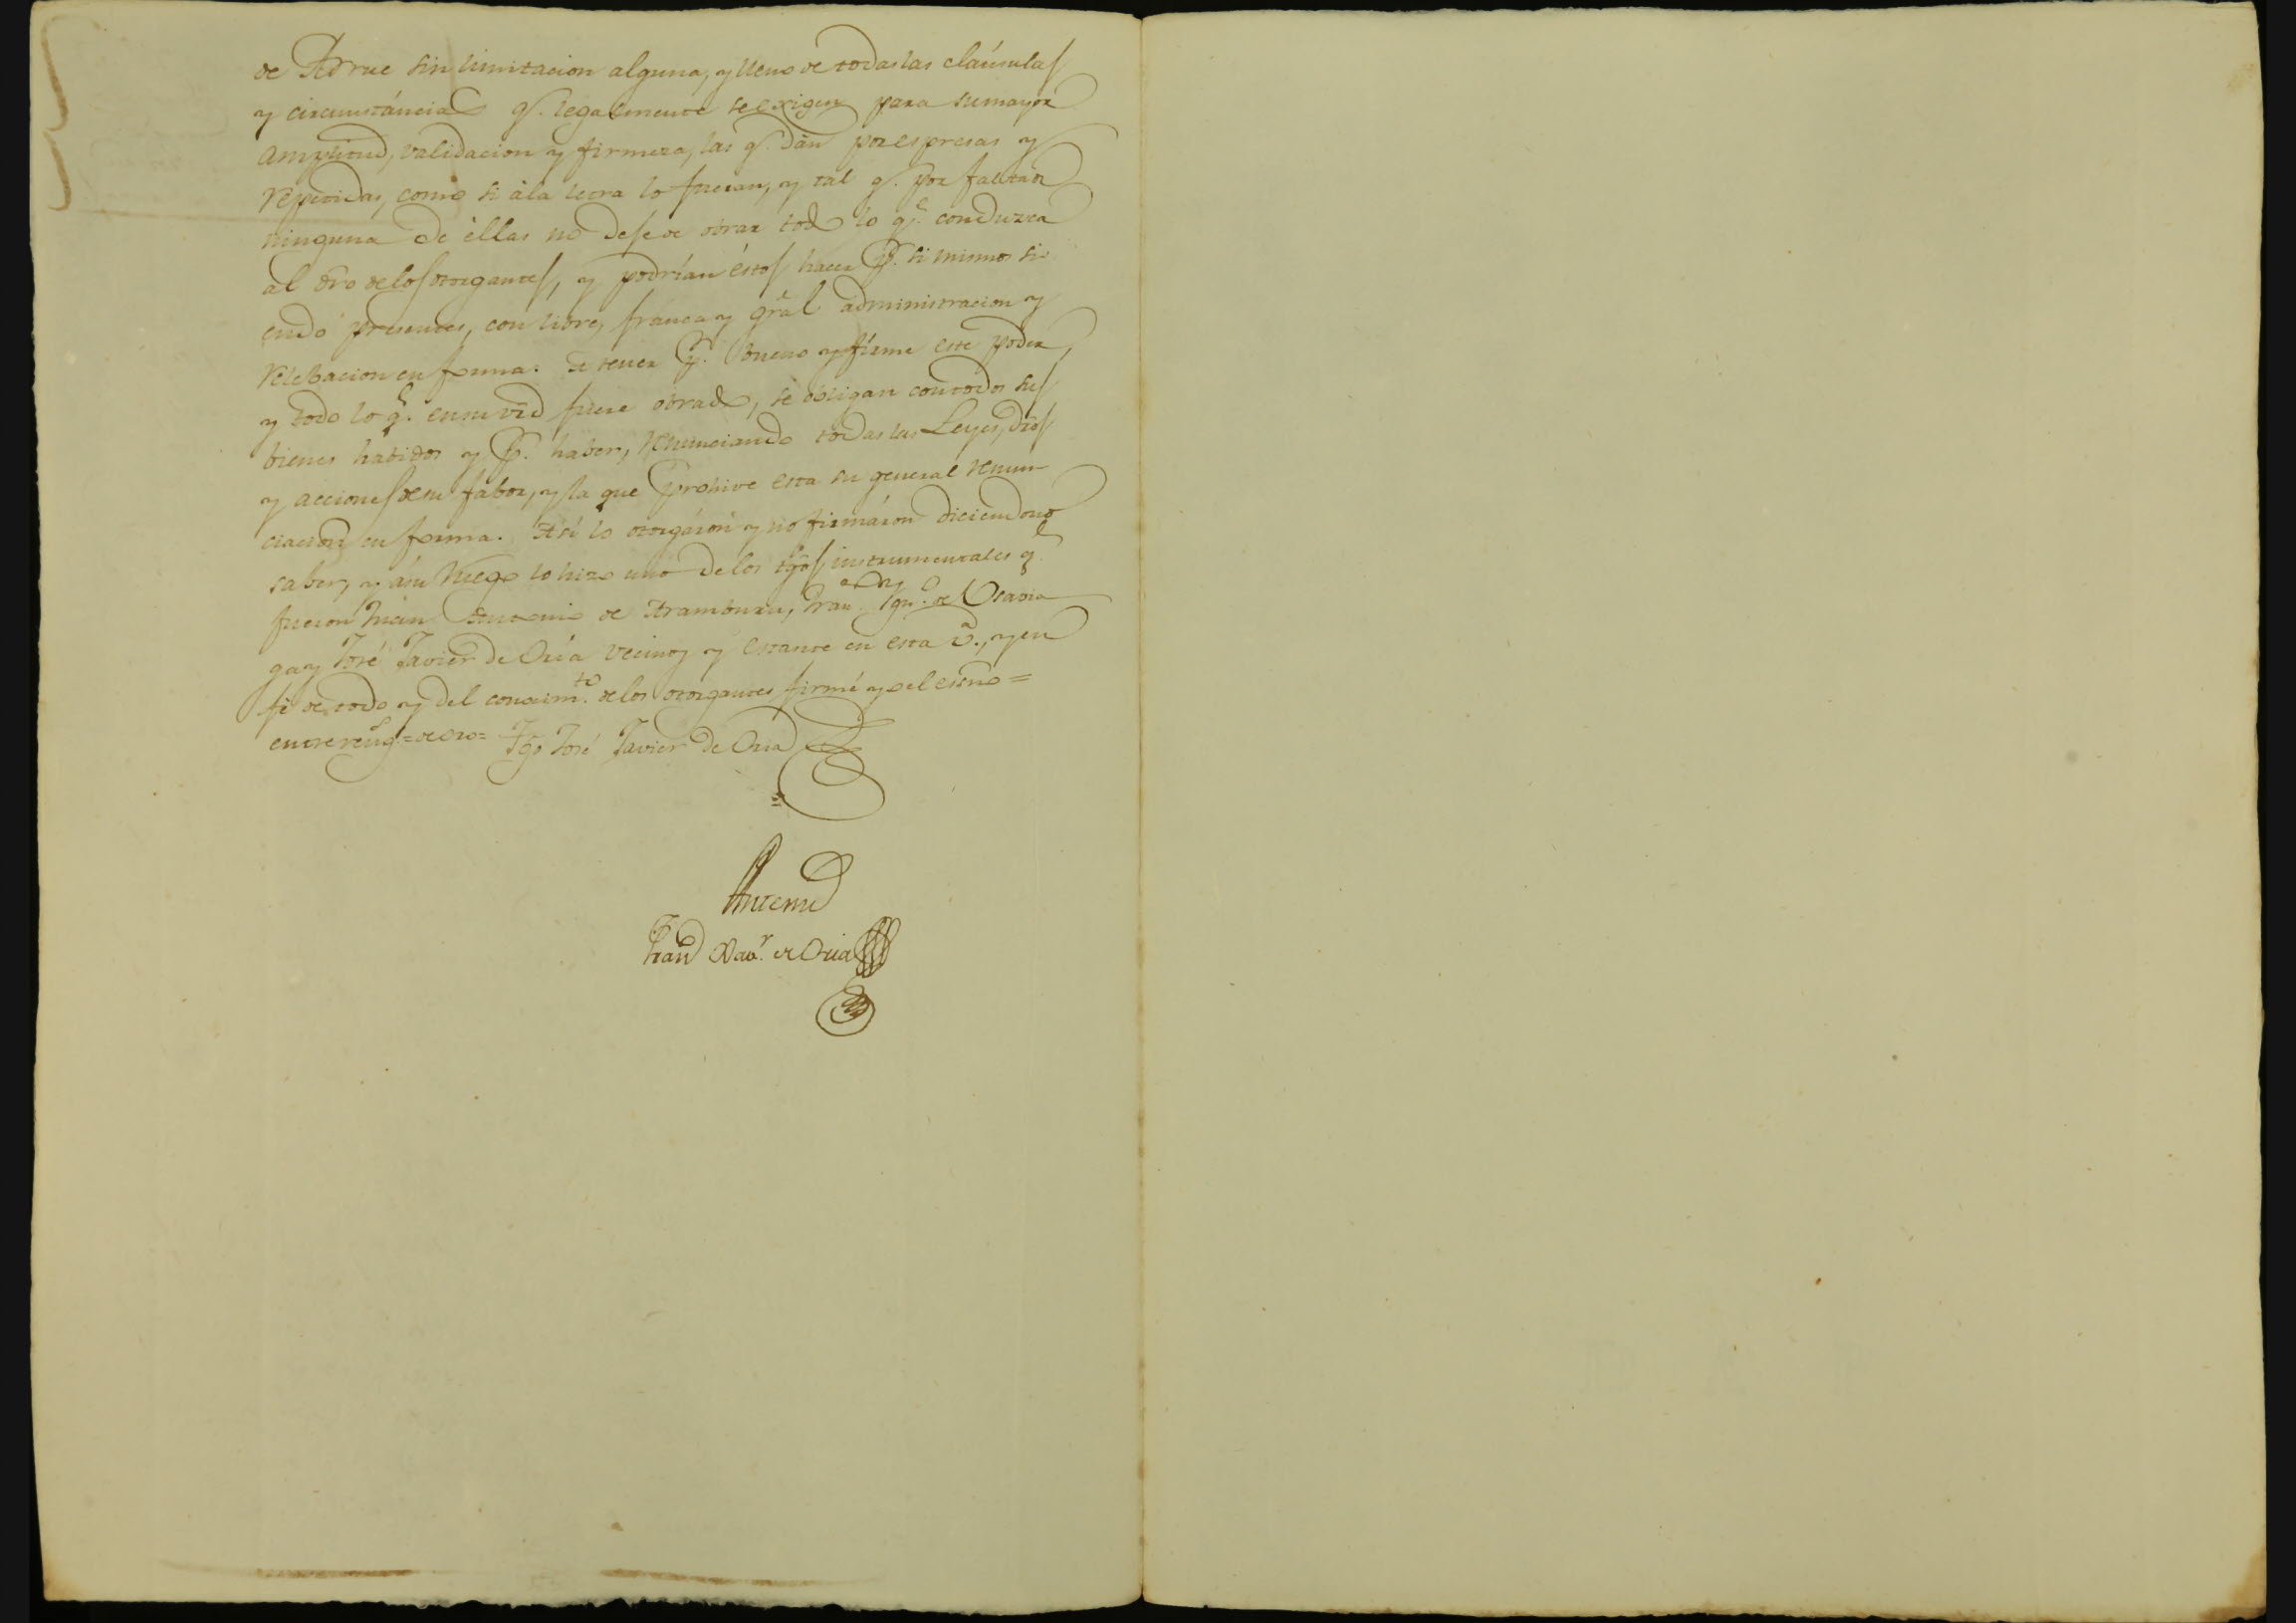 de Adrue sin limitacion alguna, y lleno de todas las cláusulas
y circunstáncias q.e legalmente se exigen para su mayor
amplitud, validacion y firmeza, las q.e dán por espresas y
repetidas, como si á la letra lo fueran, y tal q.e por faltar
ninguna de éllas no deje de obrar todo lo q.e conduzca
al dro de los otorgantes, y podrían éstos hacer p.r si mismos si-
endo presentes, con libre, franca y grâl administracion y
relebacion en forma. A tener p.r bueno y firme este poder,
y todo lo q.e en su vrd fuere obrado, se obligan con todos sus
bienes habidos y p.r haber, renunciando todas las Leyes, dros
y acciones de su fabor, y la que prohive esta su general renun-
ciacion en forma. Así lo otorgáron y no firmáron diciendo no
saber, y á su ruego lo hizo uno de los tgos instrumentales q.e
fueron Juan Antonio de Aramburu, Fran.co Ign.o de
ga y José Javier de Oria vecinos y estante en esta v.a, y en
fé de todo y del conocim.to de los otorgantes firmé yo el esno=
entre reng.s = de dro= Tgo José Javier de Oria
Antemi
Fran.co Xav.r de Oria